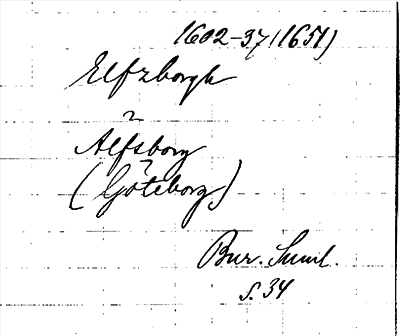 1602-37(1651)
Elfzborgh
Älfsborg
(Göteborg)
Bur. Suml.
s. 34